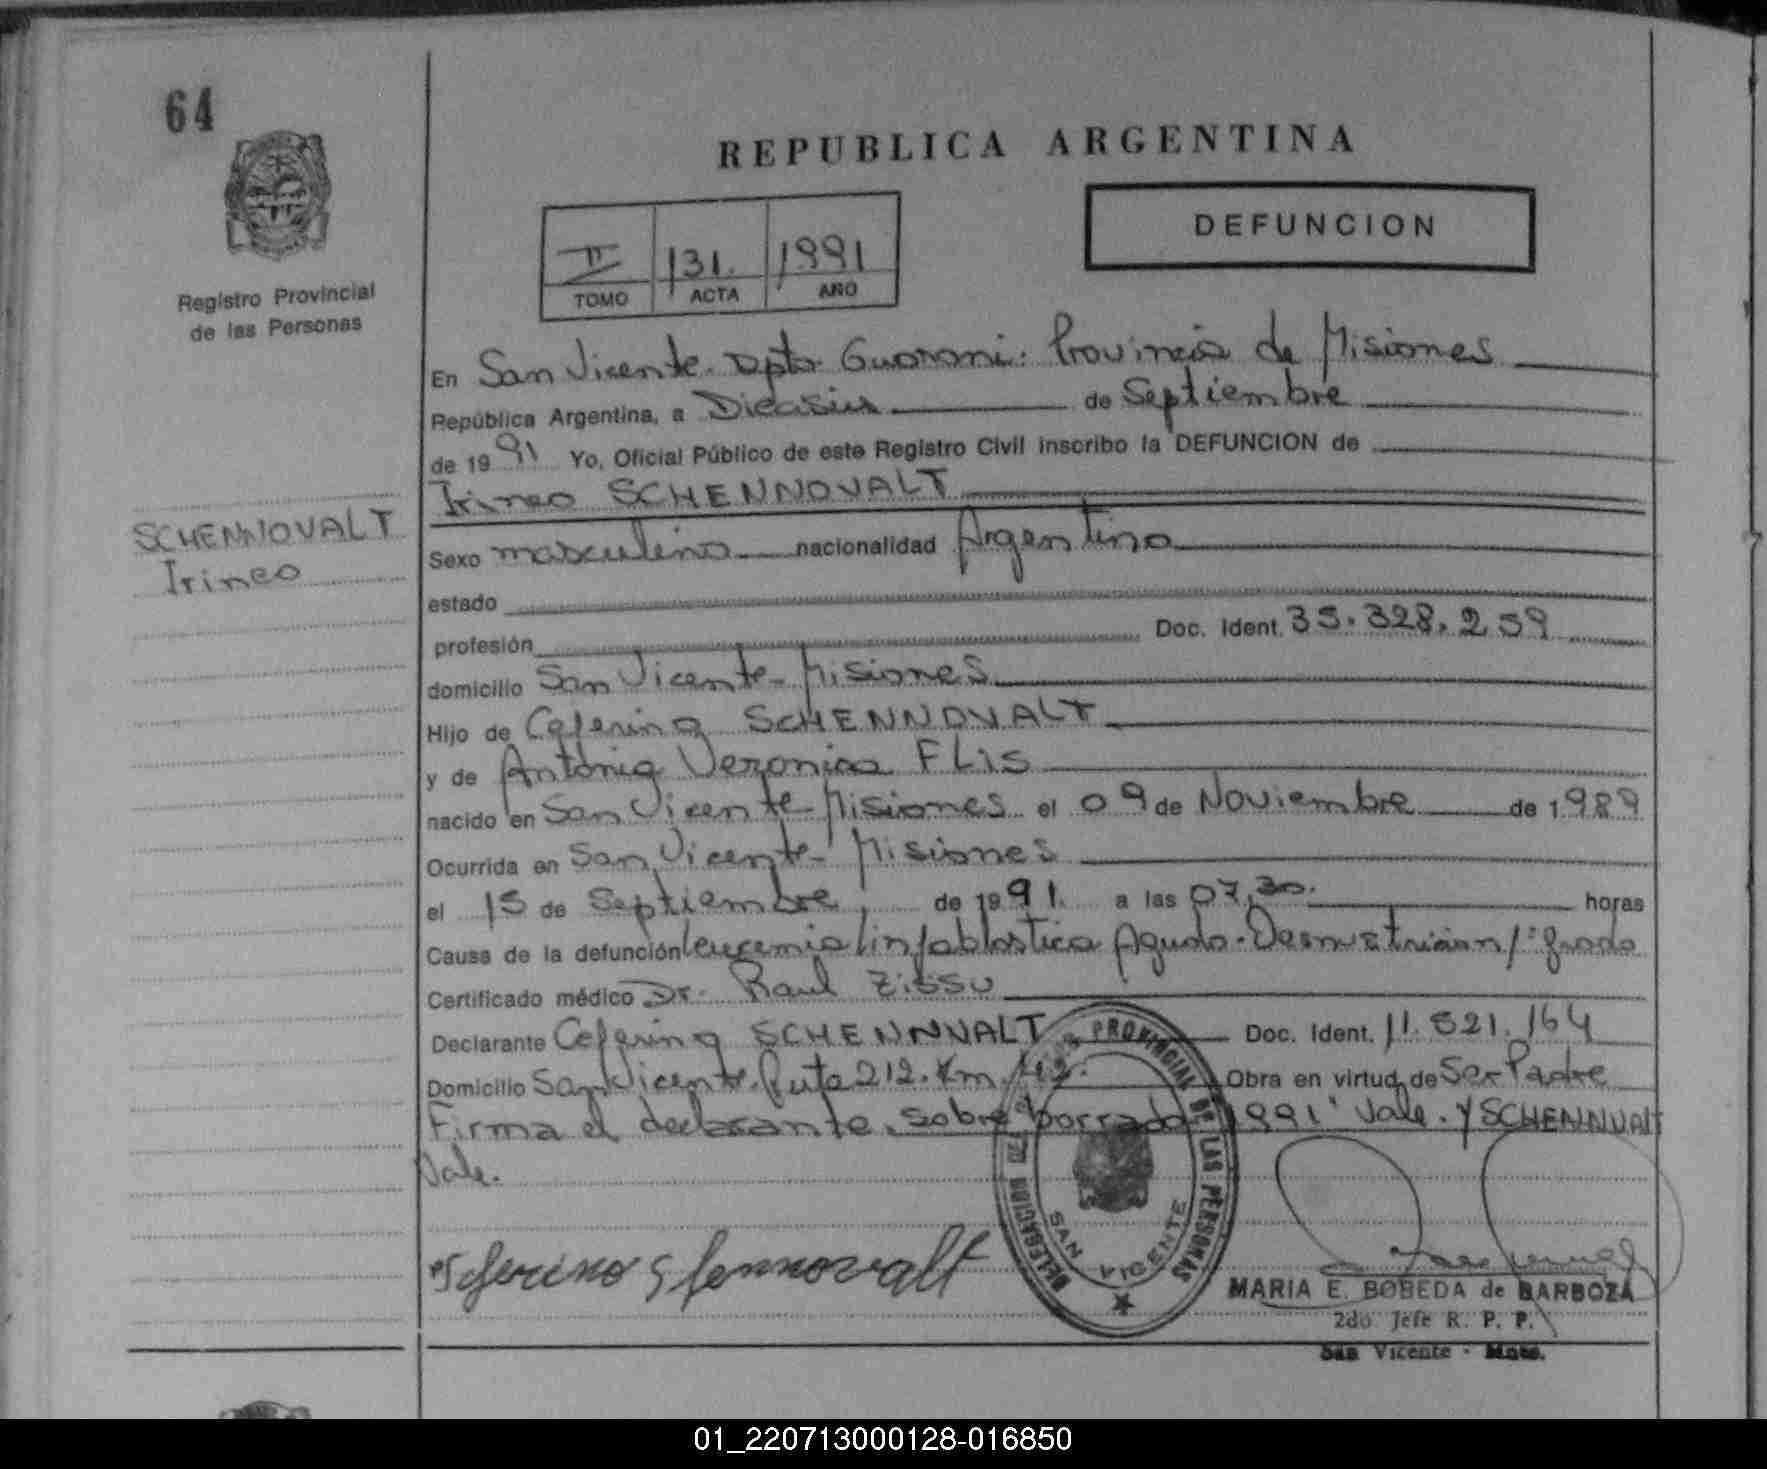 64
REPUBLICA ARGENTINA
DEFUNCION
II 131. 1991
TOMO ACTA AÑO
Registro Provincial
de las Personas
En San Vicente. Dpto. Guarani: Provincia de Misiones
República Argentina, a Dieciseis de Septiembre
de 1991 Yo, Oficial Público de este Registro Civil inscribo la DEFUNCION de
Irineo SCHENNOVALT
SCHENNOVALT
Irineo
Sexo masculino nacionalidad Argentina
estado
profesión Doc. Ident. 35.328.259
domicilio San Vicente - Misiones
Hijo de Ceferino SCHENNOVALT
y de Antonia Veronica FLIS
nacido en San Vicente Misiones el 09 de Noviembre de 1989
Ocurrida en San Vicente - Misiones
el 15 de Septiembre, de 1991. a las 07,30. horas
Causa de la defunción leucemia linfoblastica Aguda - Desnutricion 1º grado
Certificado médico Dr. Raul Zissu
Declarante Ceferino SCHENNVALT Doc. Ident. 11.821.164
Domicilio San Vicente. Ruta 212. Km. Obra en virtud de Ser Padre
Firma el declarante. Sobre borrado 1991' Vale. Y SCHENNVALT
Vale.
DELEGACION DEL REGISTRO PROVINCIAL DE LAS PERSONAS
SAN VICENTE
Seferino Shennovalt
MARIA E. BOBEDA de BARBOZA
2do. Jefe R. P. P.
San Vicente - Mnes.
01_220713000128-016850